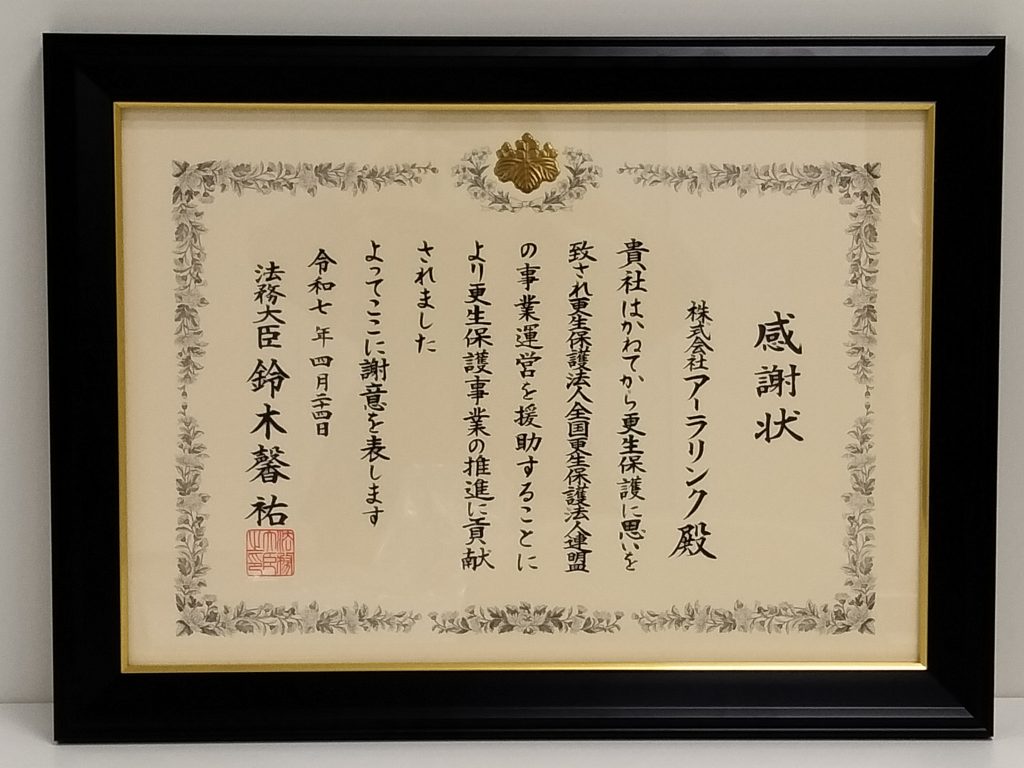 感謝状
株式会社アーラリンク殿
貴社はかねてから更生保護に思いを
致され更生保護法人全国更生保護法人連盟
の事業運営を援助することに
より更生保護事業の推進に貢献
されました
よってここに謝意を表します
令和七年四月二十四日
法務大臣鈴木馨祐
法務大臣之印